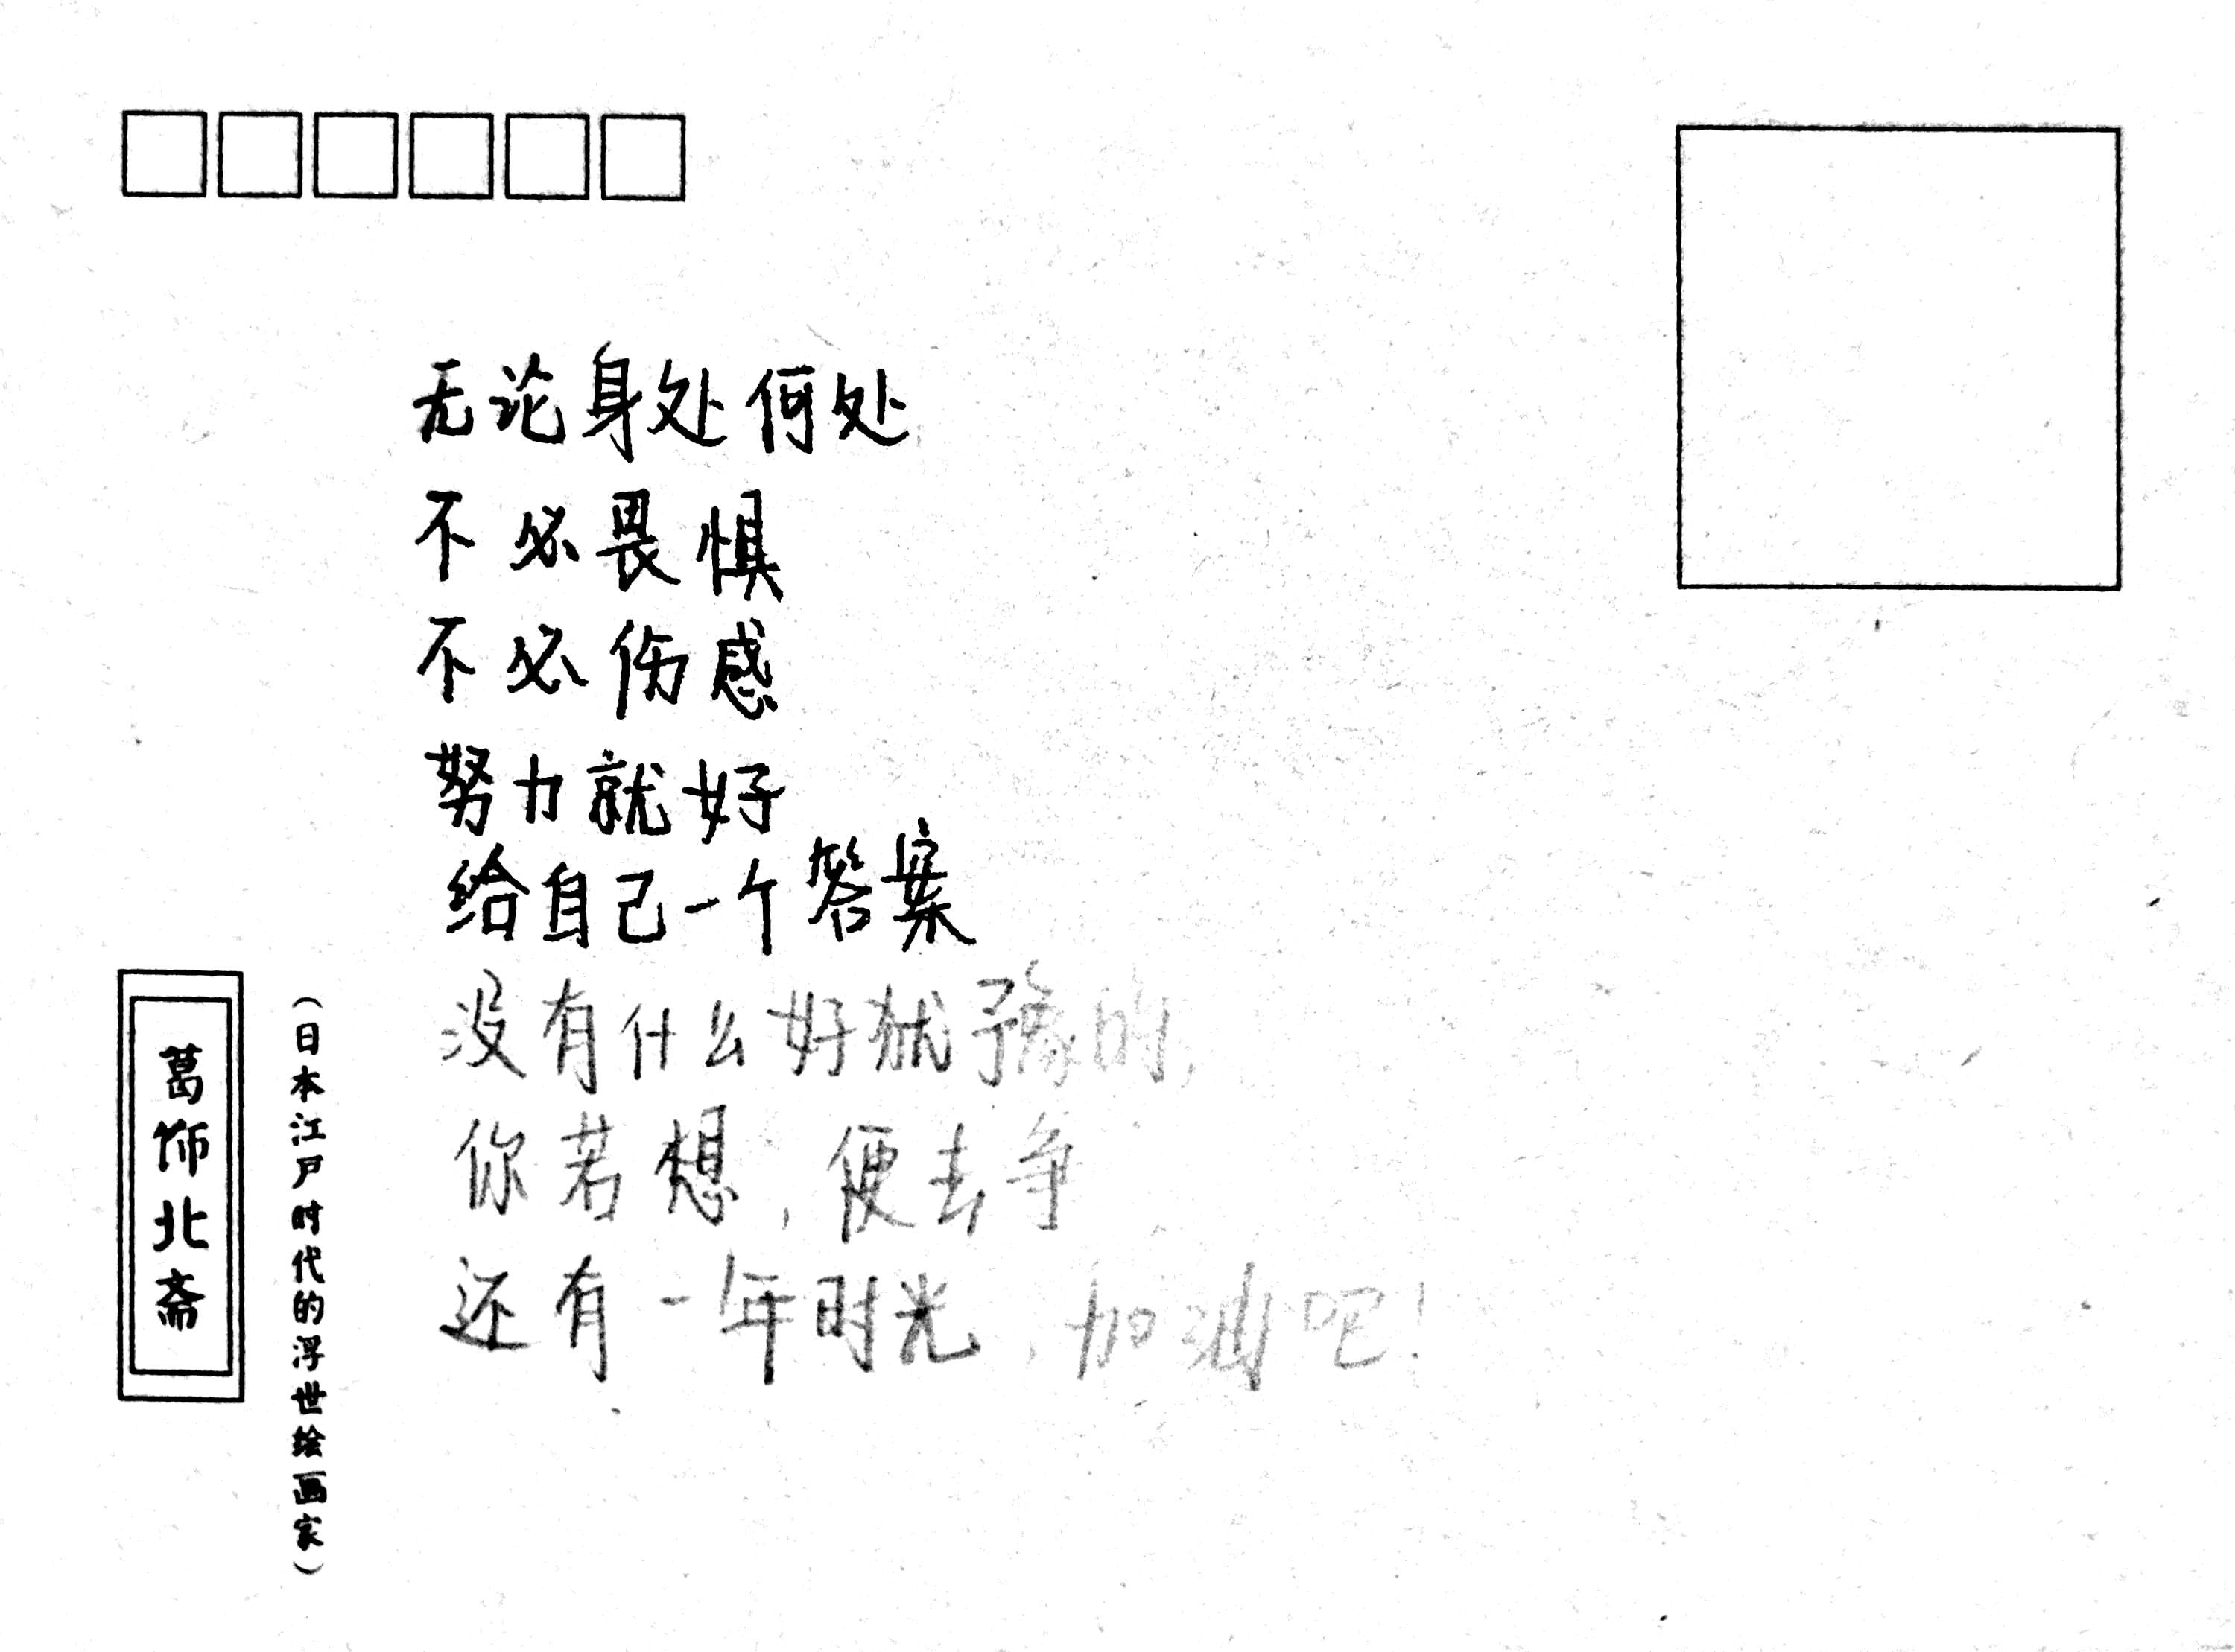 无论身处何处
不必畏惧
不必伤感
努力就好
给自己一个答案
没有什么好犹豫的,
你若想,便去争
还有一年时光,加油吧!
葛饰北斋
(日本江户时代的浮世绘画家)